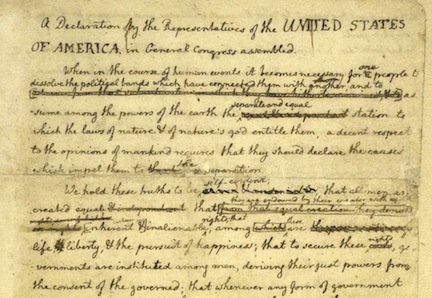 A Declaration by the Representatives of the UNITED STATES
OF AMERICA, in General Congress assembled.
When in the course of human events it becomes necessary for one people to
dissolve the political bands which have connected them with another, and to
as
separate and equal
sume among the powers of the earth the station to
which the laws of nature & of nature's god entitle them, a decent respect
to the opinions of mankind requires that they should declare the causes
which impel them to the separation.
self-evident;
We hold these truths to be that all men are
they are endowed by their creator with
created equal & independant that from that equal creation they derive
rights; that these
inherent & inalienable, among which are
life, & liberty, & the pursuit of happiness; that to secure these rights, go
vernments are instituted among men, deriving their just powers from
the consent of the governed; that whenever any form of government